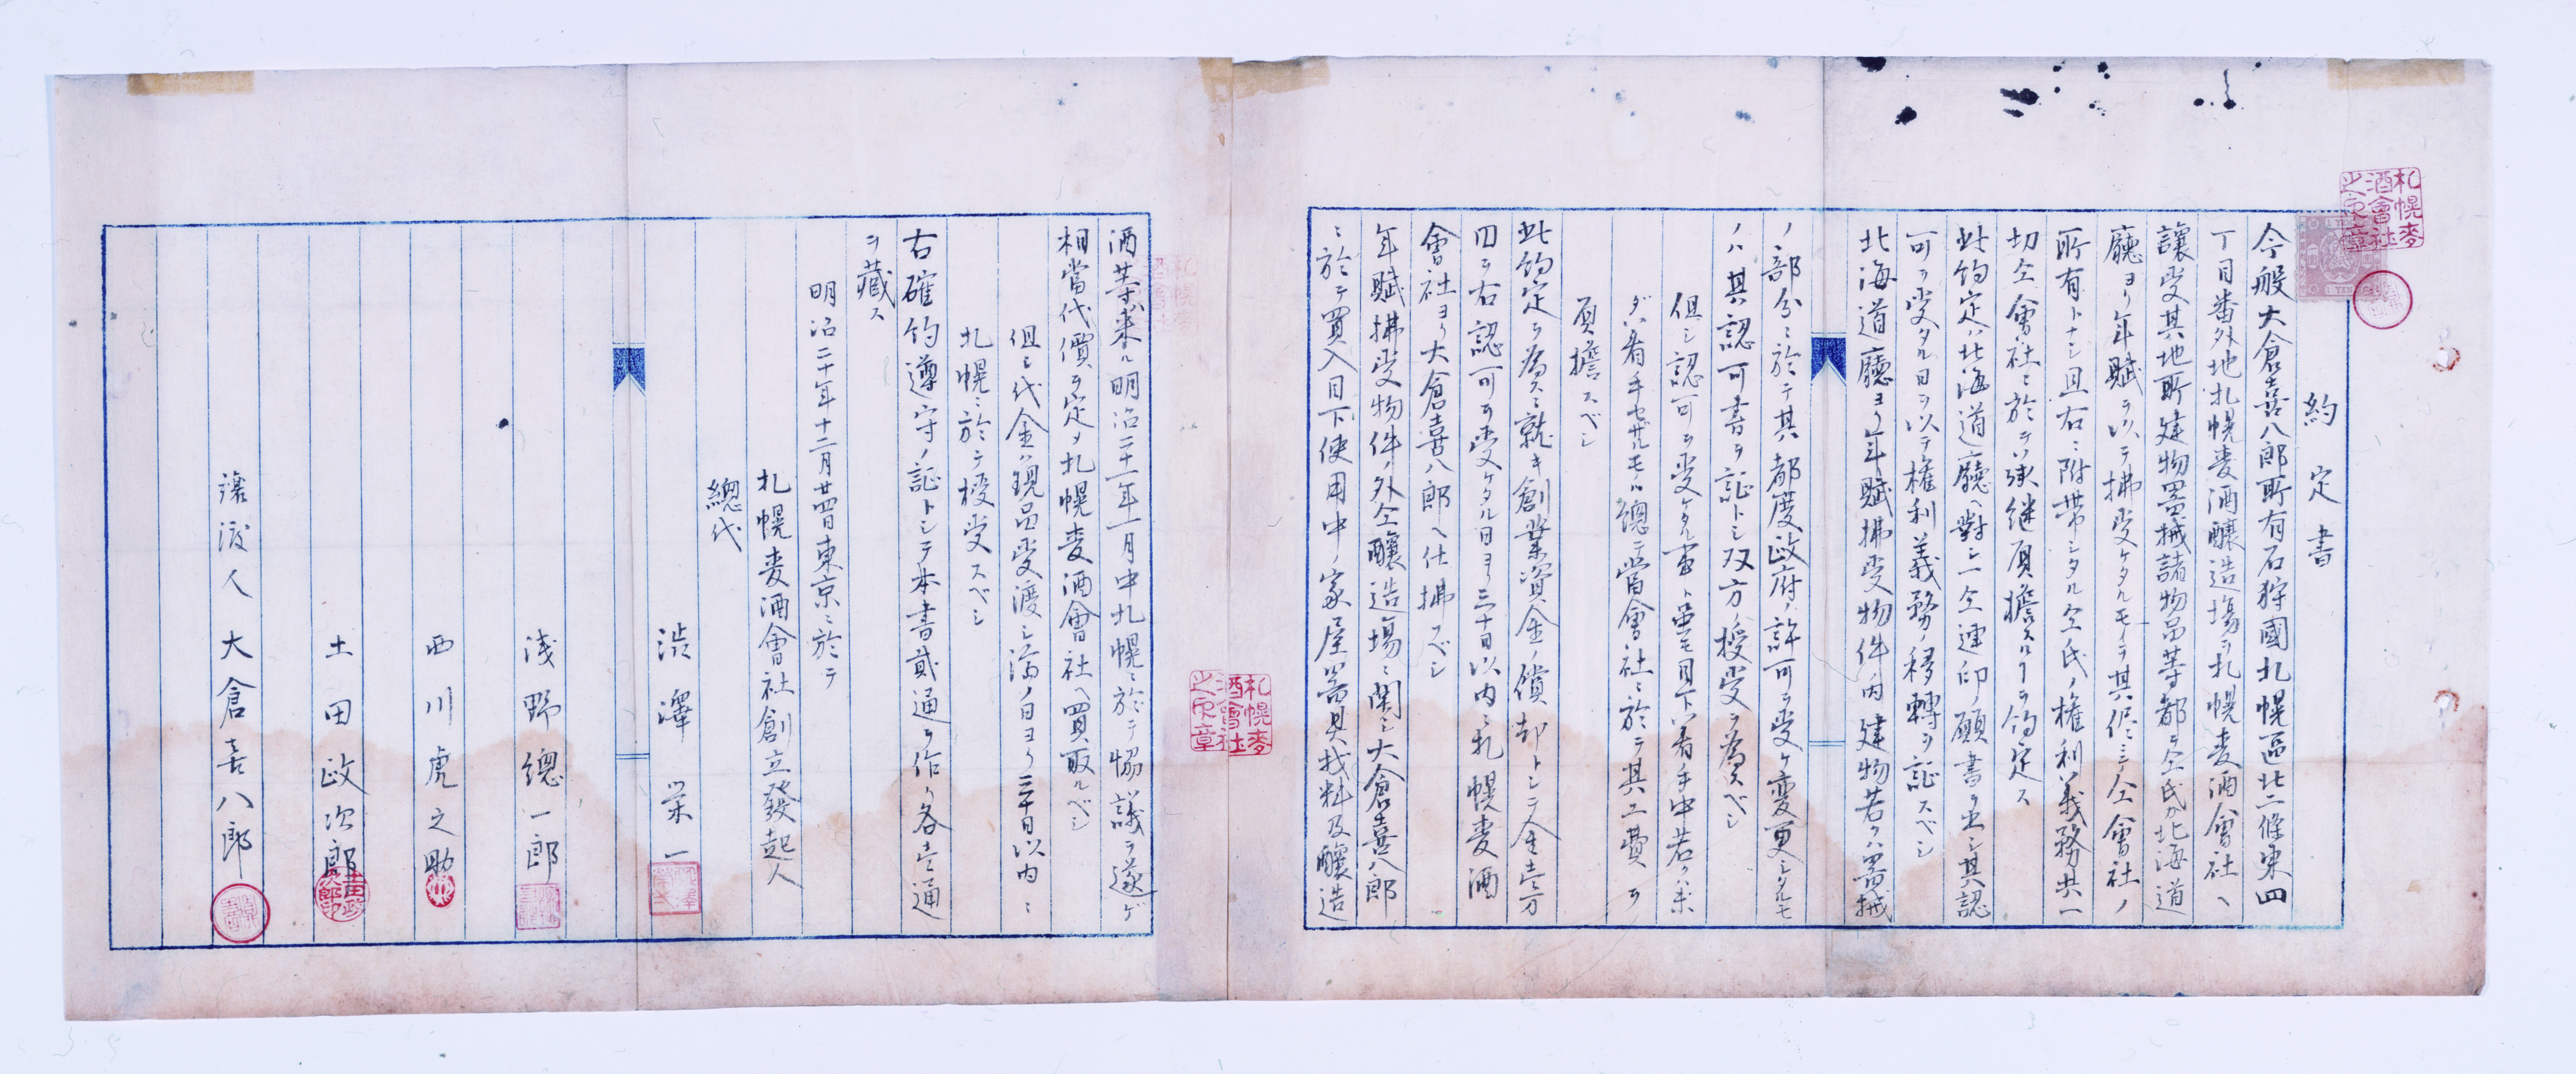 約定書
今般大倉喜八郎所有石狩國札幌區北二條東四
丁目番外地札幌麦酒醸造塲ヲ札幌麦酒會社ヘ
讓受其地所建物器械諸物品等都テ仝氏カ北海道
廳ヨリ年賦ヲ以テ拂受ケタルモノヲ其侭ミニ仝會社ノ
所有トナシ且右ニ附帯シタル仝氏ノ権利義務共一
切仝會社ニ於テ承継負擔スルヿヲ約定ス
此約定ハ北海道廳ヘ對シ一仝連印ノ願書ヲ呈シ其認
可ヲ受タル日ヲ以テ権利義務ノ移轉ヲ証スベシ
北海道廳ヨリ年賦拂受物件ノ内建物若クハ器械
ノ部分ニ於テ其都度政府ノ許可ヲ受ケ変更シタルモ
ノハ其認可書ヲ証トシ双方ノ授受ヲ為スベシ
但シ認可ヲ受ケタル事ト雖モ目下着手中若クハ未
ダ着手セザルモノハ總テ當會社ニ於テ其工費ヲ
負擔スベシ
此約定ヲ為スニ就キ創業資金ノ償却トシテ金壱万
円ヲ右認可ヲ受ケタル日ヨリ三十日以内ニ札幌麦酒
會社ヨリ大倉喜八郎ヘ仕拂フベシ
年賦拂受物件ノ外仝醸造場ニ関シ大倉喜八郎
ニ於テ買入目下使用中ノ家屋器具材料及醸造
酒等ハ来ル明治二十一年一月中札幌ニ於テ協議ヲ遂ゲ
相當代價ヲ定メ札幌麦酒會社ヘ買取ルベシ
但シ代金ハ現品受渡シ済ノ日ヨリ三十日以内ニ
札幌ニ於テ授受スベシ
右確約遵守ノ証トシテ本書貮通ヲ作リ各壱通
ヲ藏ス
明治二十年十二月廿四日東京ニ於テ
札幌麦酒會社創立發起人
總代
渋澤栄一
浅野總一郎
西川虎之助
土田政次郎
讓渡人 大倉喜八郎
札幌麦酒會社之印章
札幌麦酒會社之印章